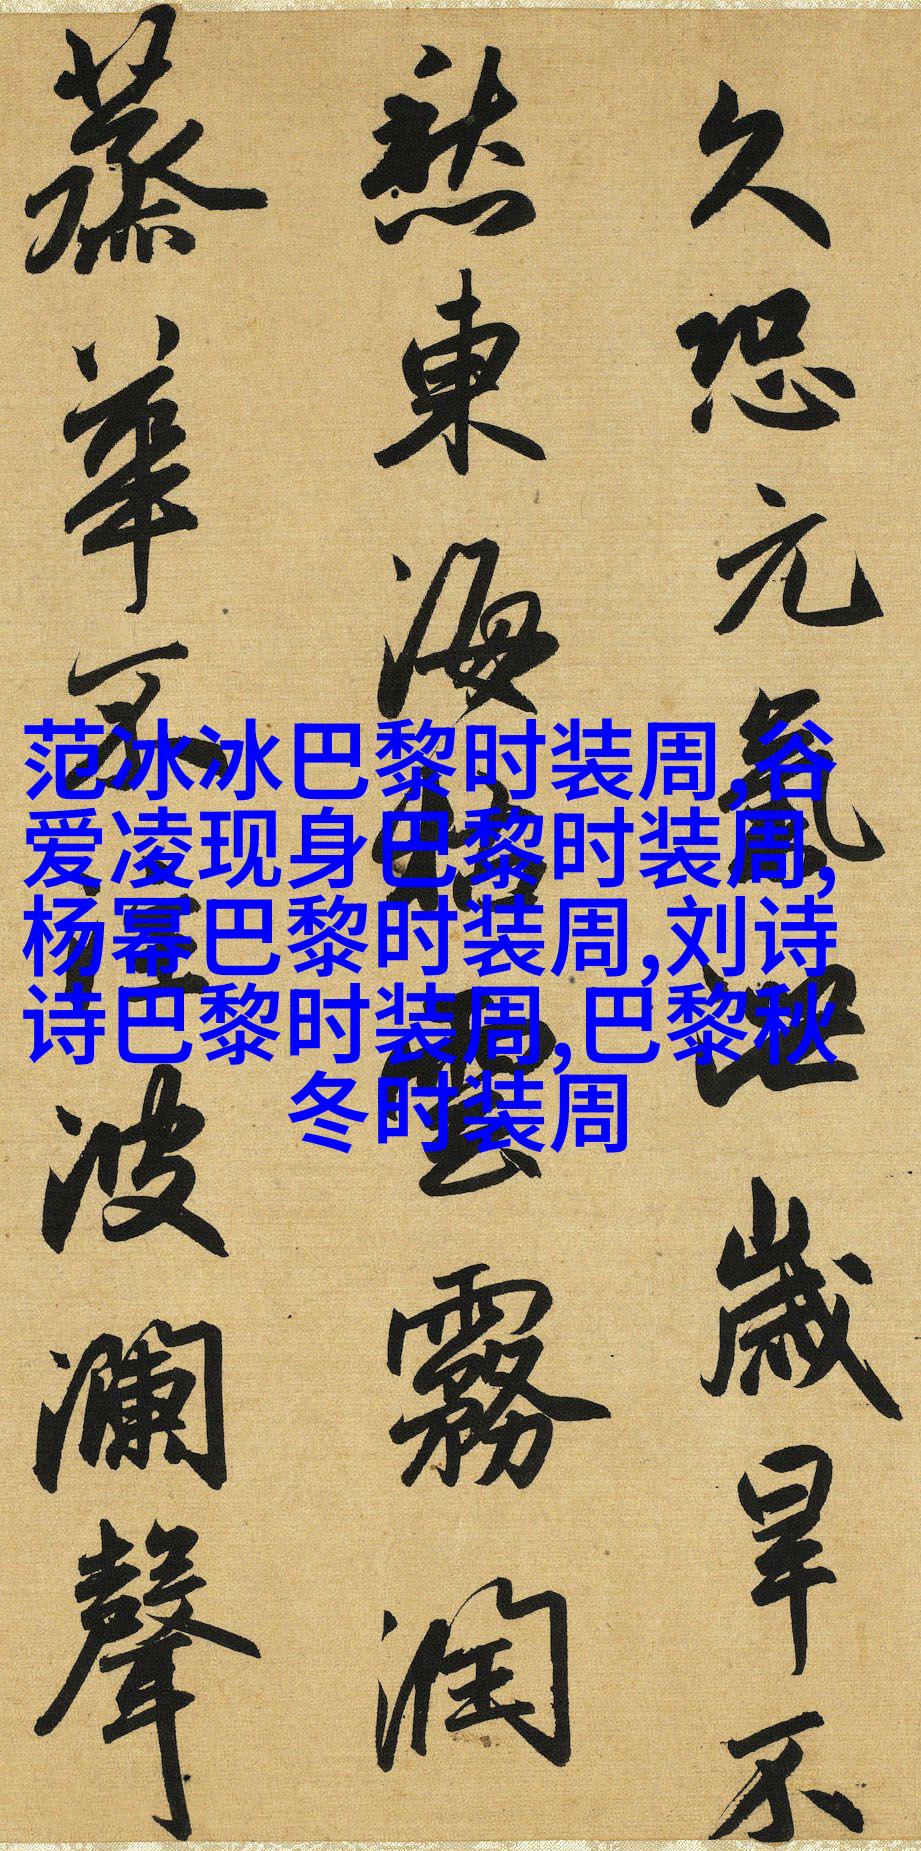 久恐元氣泄歲旱不
愁東海枯雲霧潤
蒸華不注波瀾聲
范冰冰巴黎时装周,谷
爱凌现身巴黎时装周,
杨幂巴黎时装周,刘诗
诗巴黎时装周,巴黎秋
冬时装周